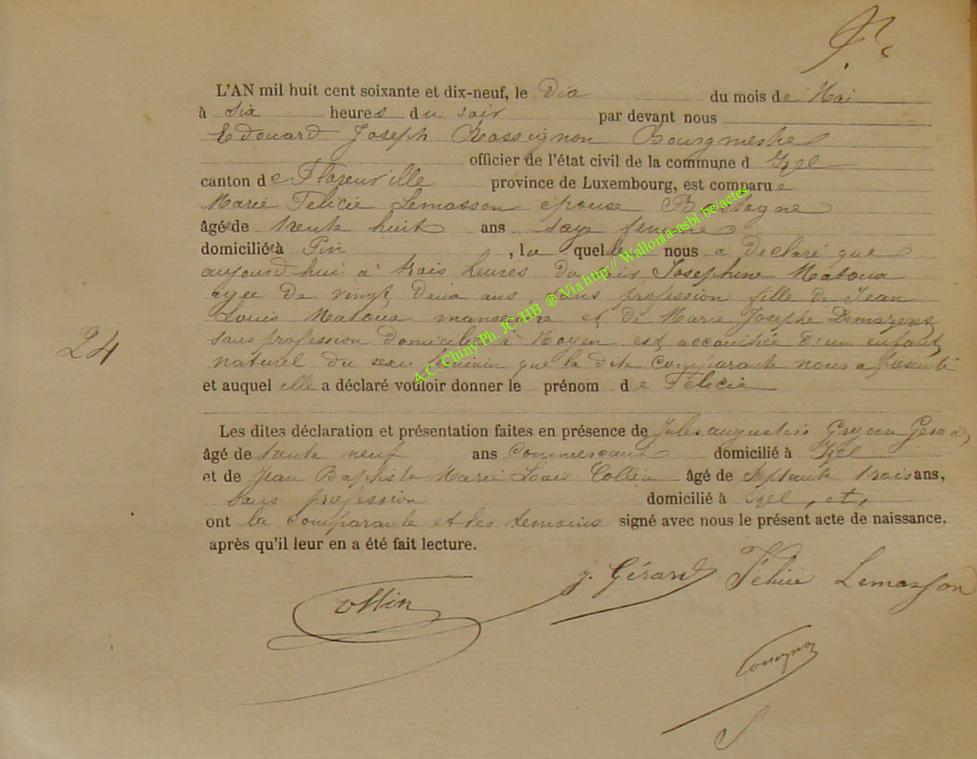 L'AN mil huit cent soixante et dix-neuf, le Dix du mois de Mai
à six heures du soir par devant nous
Edouard Joseph Rossignon Bourgmestre
officier de l'état civil de la commune d Izel
canton de Florenville province de Luxembourg, est comparue
Marie Félicie Lemasson épouse Bastogne
âgée de trente huit ans sage femme
domiciliée à Pin, la quelle nous a déclaré que
aujourd'hui à trois heures du soir Josephine Matoux
agée de vingt deux ans, sans profession fille de Jean
Louis Matoux et de Marie Josephe
24
sans profession domiciliée à Moyen est accouchée d'un enfant
naturel du sexe féminin que la dite comparante nous a présenté
et auquel elle a déclaré vouloir donner le prénom de Félicie
Les dites déclaration et présentation faites en présence de Jules augustin Gérard
âgé de trente neuf ans commercant domicilié à Izel
et de Jean Baptiste Marie Louis Collin âgé de septante trois ans,
sans profession domicilié à Izel, et,
ont la comparante et les temoins signé avec nous le présent acte de naissance,
après qu'il leur en a été fait lecture.
J. Gérard Félicie Lemasson
Collin
Rossignon
A.C. Chiny Ph. JC-HB ® Via http:// Wallonia-asbl.be/actes